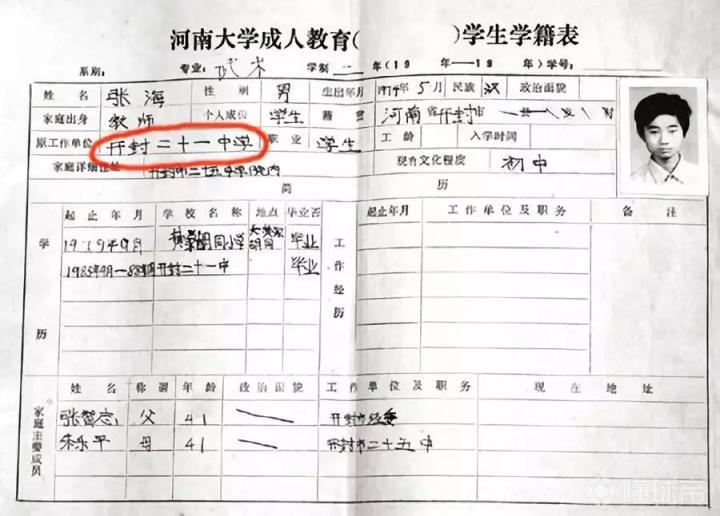 河南大学成人教育( )学生学籍表
系别: 专业: 武术 学制 二 年(19 年—19 年)学号:
姓名 张海 性别 男 生出年月 1974年5月 民族 汉 政治面貌
家庭出身 教师 个人成份 学生 籍贯 河南省开封市
原工作单位 开封二十一中学 职业 学生 工龄 入学时间
家庭详细住处 开封市二十五中家院内 现有文化程度 初中
简 历
学历
起止年月 学校名称 地点 毕业否
胡同小学 毕业
开封二十一中 毕业
工作经历
起止年月 工作单位及职务 备注
家庭主要成员
姓名 称谓 年龄 政治面貌 工作单位及职务 现在地址
张智志 父 41 — 开封市经委
朱乐平 母 41 — 开封市二十五中
懂球帝